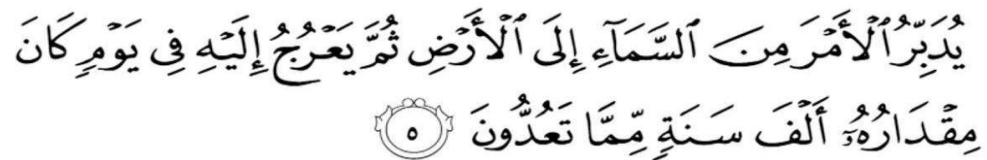 يُدَبِّرُ ٱلْأَمْرَ مِنَ ٱلسَّمَآءِ إِلَى ٱلْأَرْضِ ثُمَّ يَعْرُجُ إِلَيْهِ فِى يَوْمٍۢ كَانَ
مِقْدَارُهُۥٓ أَلْفَ سَنَةٍۢ مِّمَّا تَعُدُّونَ ٥